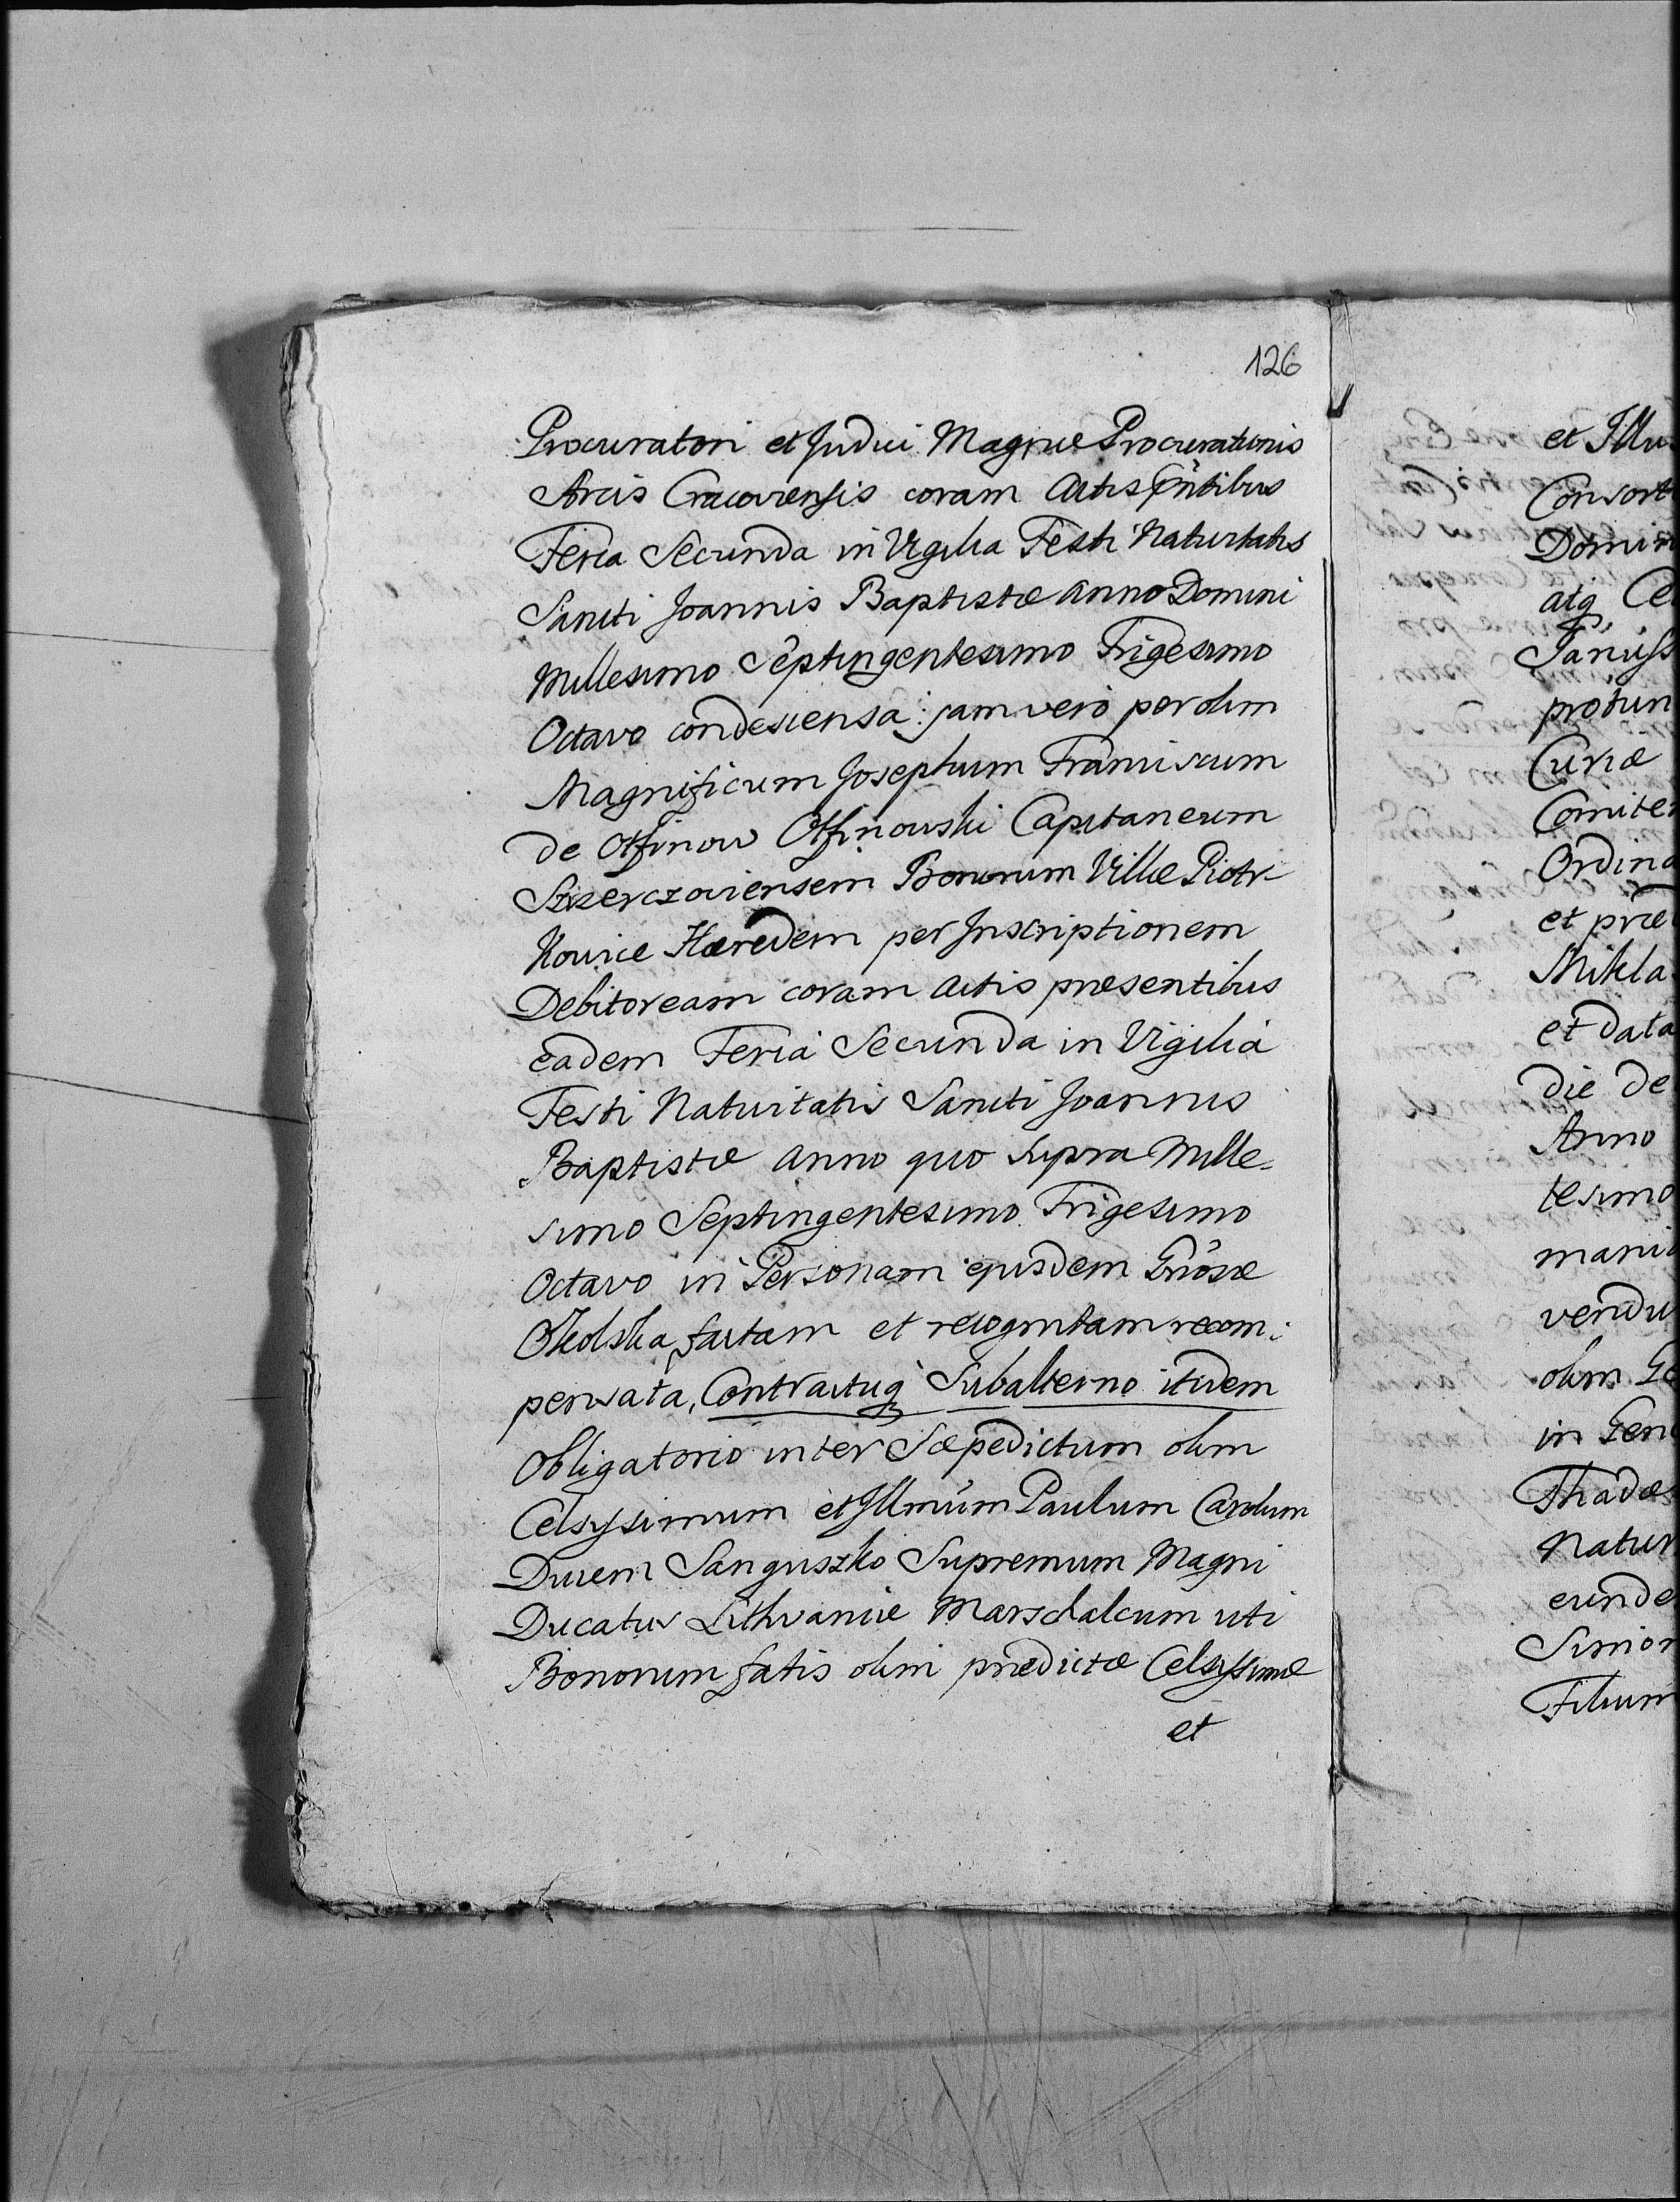 126
Procuratori et Judici Magnæ Procurationis
Arcis Cracoviensis coram Actis pñtibus
Feria Secunda in Vigilia Festi Nativitatis
Sancti Joannis Baptistæ Anno Domini
Millesimo Septingentesimo Trigesimo
Octavo condescensa: jam vero per olim
Magnificum Josephum Franciscum
de Otfinow Otfinowski Capitaneum
Szczerczoviensem Bonorum Villæ Piotr-
kowice Hæredem per Inscriptionem
Debitoream coram Actis præsentibus
eadem Feria Secunda in Vigilia
Festi Nativitatis Sancti Joannis
Baptistæ Anno quo supra Mille-
simo Septingentesimo Trigesimo
Octavo in Personam ejusdem Gñosæ
Okolska factam et recognitam recom:
pensata, Contractuq Subalterno itidem
Obligatorio inter Sæpedictum olim
Celsissimum et Illmum Paulum Carolum
Ducem Sanguszko Supremum Magni
Ducatus Lithvaniæ Marschalcum uti
Bonorum satis olim prædictæ Celsissimæ
et
et Illu
Consort
Domin
atq Ce
Januss
protun
Curiæ
Comite
Ordina
et præ
Mikla
et data
die de
Anno
tesimo
mani
vendu
olim Ge
in Gen
Thadæ
Natur
eunde
Sunior
Filium